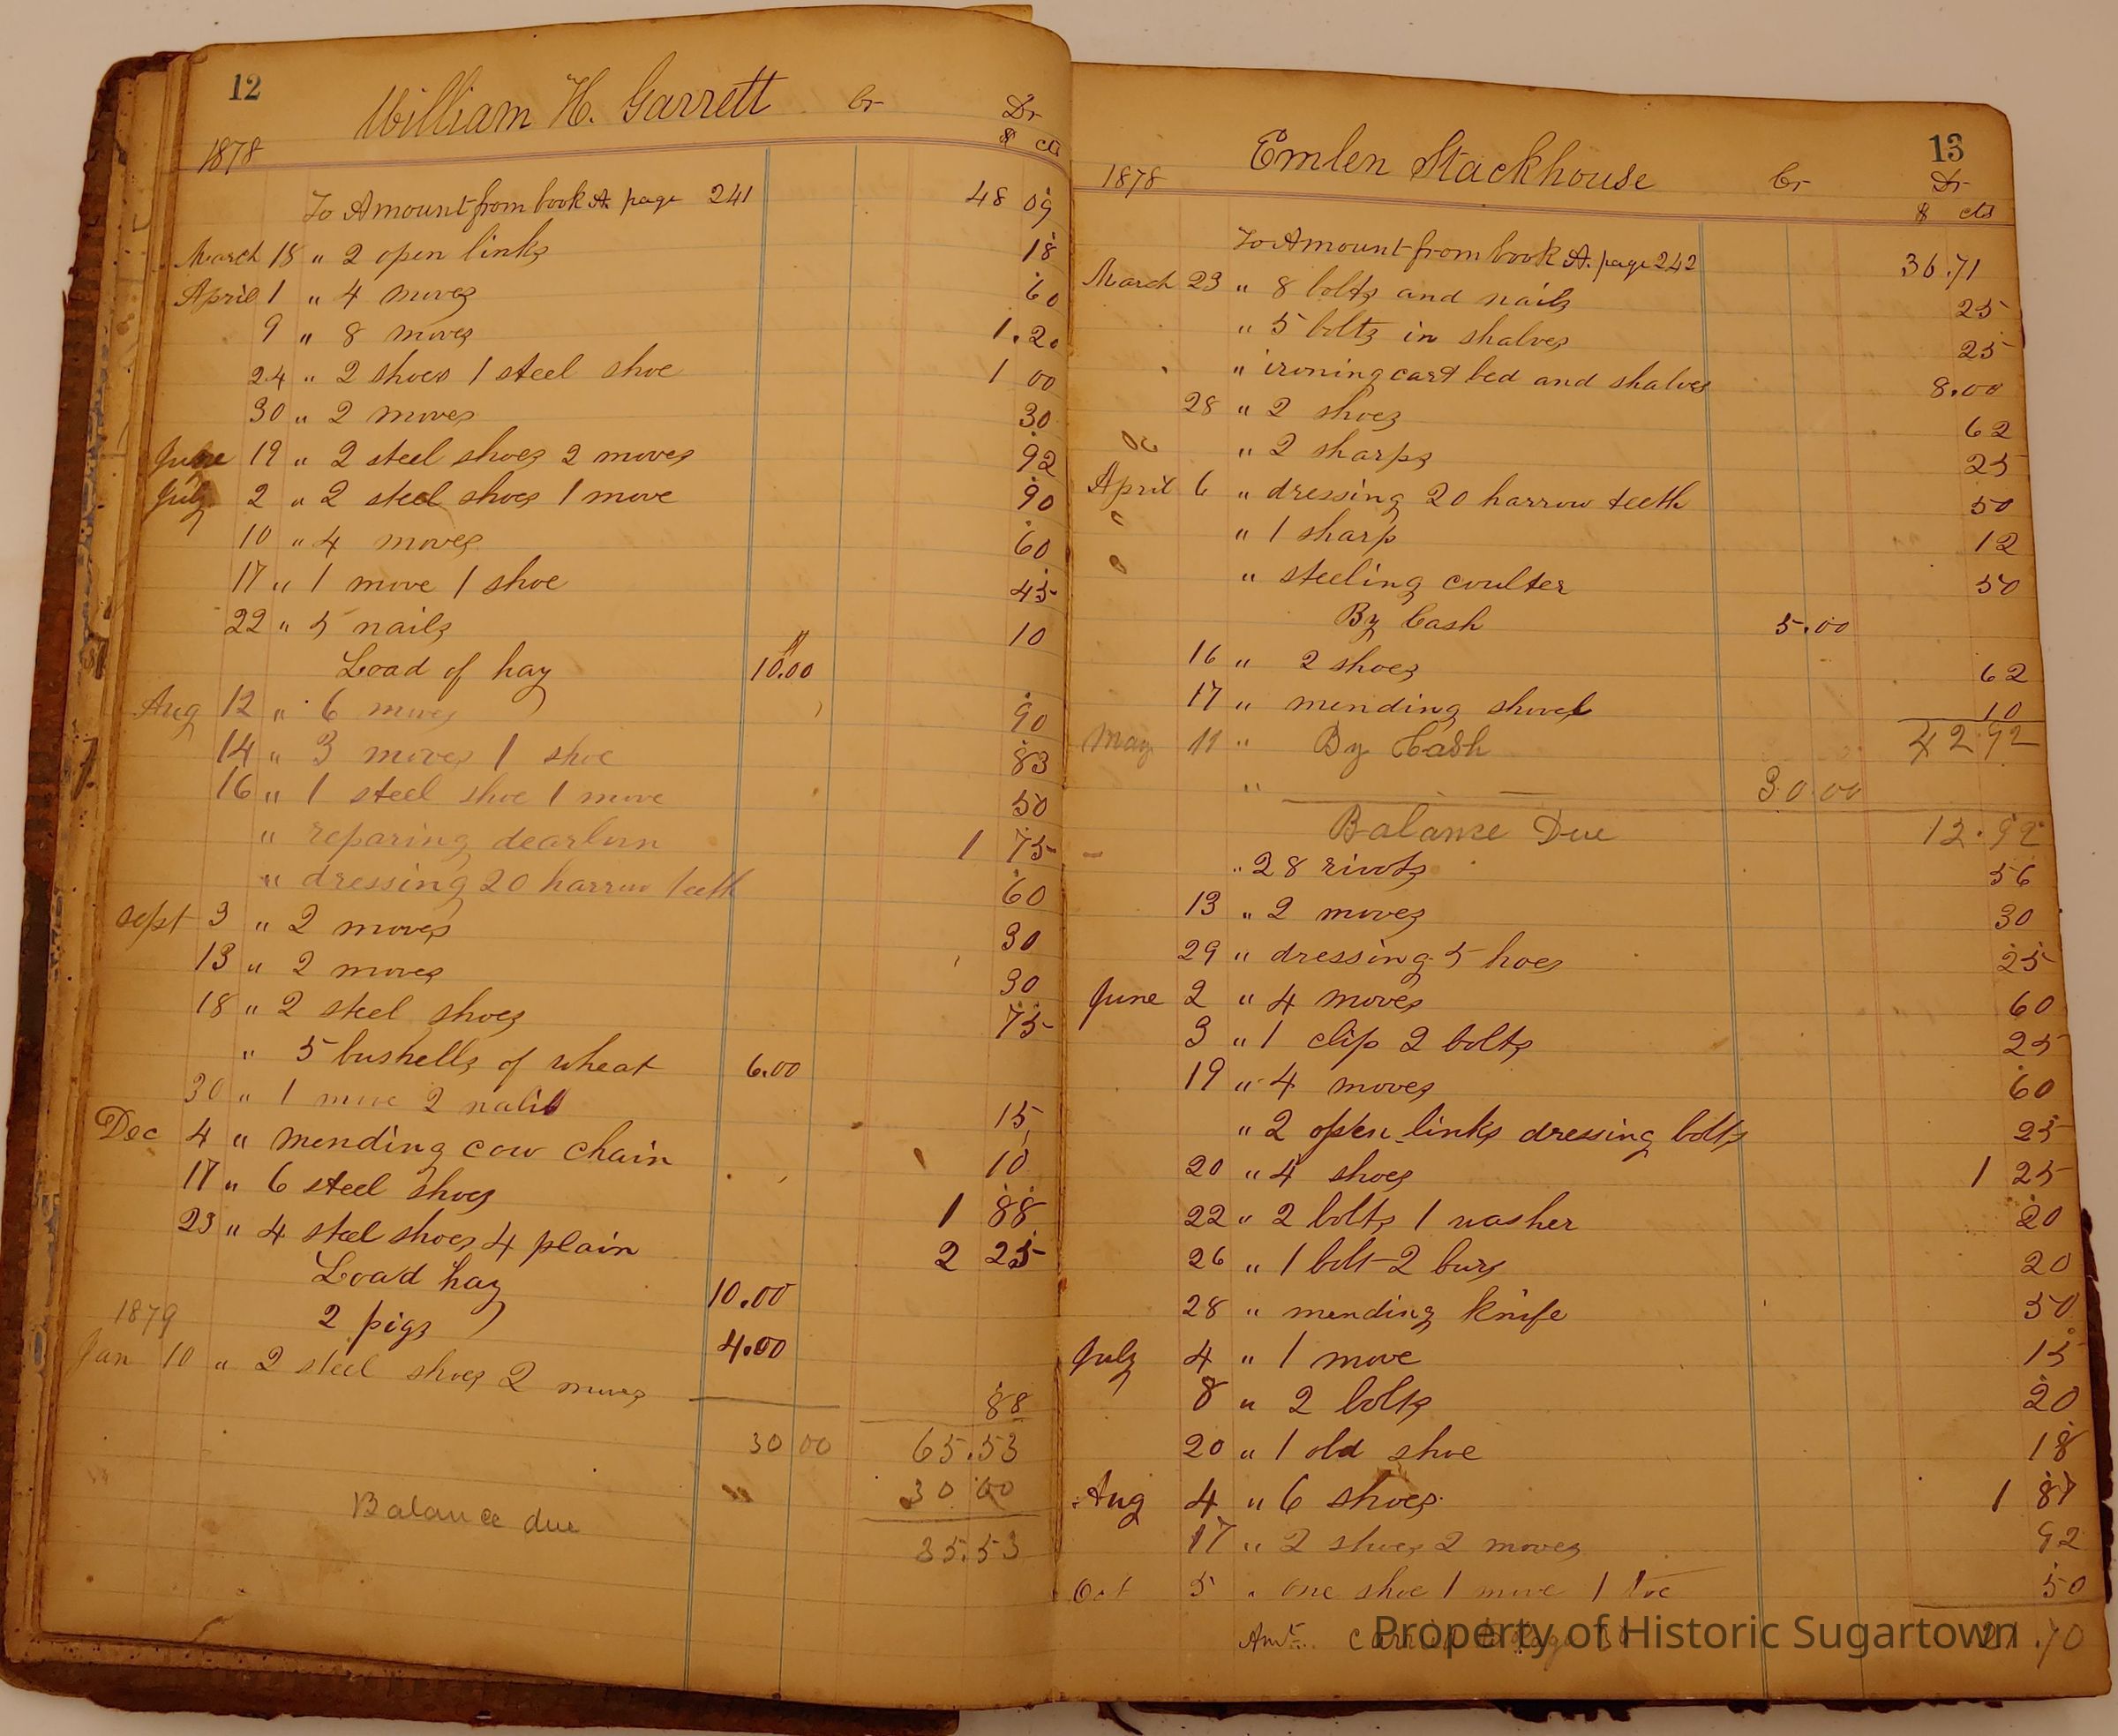 12
William H. Garrett Cr Dr
1878 $ cts
To Amount from book A. page 241 48 09
March 18 " 2 open links 18
April 1 " 4 moves 60
9 " 8 moves 1.20
24 " 2 shoes 1 steel shoe 1 00
30 " 2 moves 30
June 19 " 2 steel shoes 2 moves 92
July 2 " 2 steel shoes 1 move 90
10 " 4 moves 60
17 " 1 move 1 shoe 45
22 " 5 nails 10
Load of hay 10.00
Aug 12 " 6 moves 90
14 " 3 moves 1 shoe 83
16 " 1 steel shoe 1 move 50
" reparing dearbun 1 75
" dressing 20 harrow teeth 60
Sept 3 " 2 moves 30
13 " 2 moves 30
18 " 2 steel shoes 75
" 5 bushells of wheat 6.00
30 " 1 move 2 nails 15
Dec 4 " mending cow chain 10
17 " 6 steel shoes 1 88
23 " 4 steel shoes 4 plain 2 25
Load hay 10.00
1879 2 pigs 4.00
Jan 10 " 2 steel shoes 2 moves 88
30 00 65.53
30 00
Balance due 35.53
13
Emlen Stackhouse Cr Dr
1878 $ cts
To Amount from book A. page 242 36.71
March 23 " 8 bolts and nails 25
" 5 bolts in shalves 25
" ironing cart bed and shalves 8.00
28 " 2 shoes 62
" 2 sharps 25
April 6 " dressing 20 harrow teeth 50
" 1 sharp 12
" steeling coulter 50
By Cash 5.00
16 " 2 shoes 62
17 " mending shovel 10
May 11 " By Cash 42.92
" 30.00
Balance Due 12.92
" 28 rivots 56
13 " 2 moves 30
29 " dressing 5 hoes 25
June 2 " 4 moves 60
3 " 1 clip 2 bolts 25
19 " 4 moves 60
" 2 open links dressing bolts 25
20 " 4 shoes 1 25
22 " 2 bolts 1 washer 20
26 " 1 bolt 2 burs 20
28 " mending knife 50
July 4 " 1 move 15
8 " 2 bolts 20
20 " 1 old shoe 18
Aug 4 " 6 shoes 1 87
17 " 2 shoes 2 moves 92
Oct 5 " one shoe 1 move 1 toe 50
Amt. carried to page .70
Property of Historic Sugartown